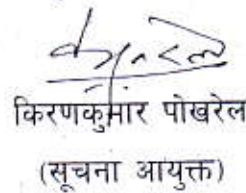 किरणकुमार पोखरेल
(सूचना आयुक्त)